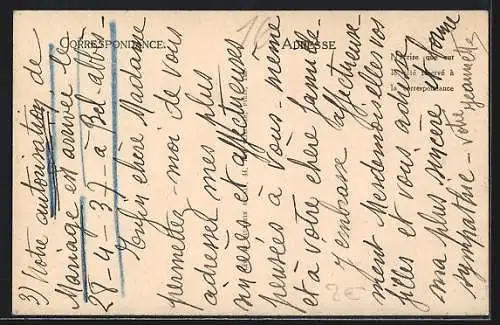 CORRESPONDANCE
ADRESSE
N'écrire que sur
le côté réservé à
la correspondance
16
3) Votre autorisation de
Mariage est arrivée le
28-4-37 à Bel-Abbès-
Enfin chère Madame
permettez-moi de vous
adresser mes plus
sincères et affectueuses
pensées à vous-même
et à votre chère famille-
J'embrasse affectueuse-
ment Mesdemoiselles vos
filles et vous adresse
ma plus sincère et bonne
sympathie - Votre Jeannette
2€